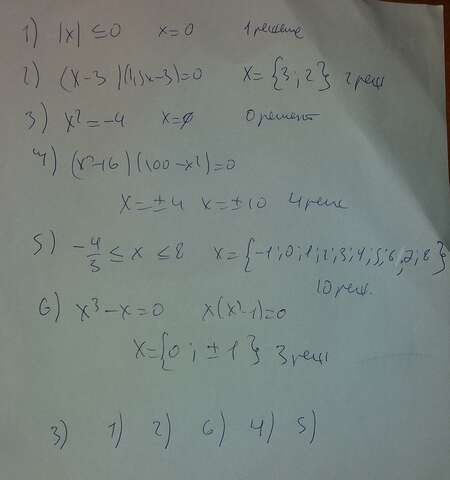 1) |x| ≤ 0 x=0 1 решение
2) (x-3)(1,5x-3)=0 x={3;2} 2 реш
3) x²=-4 x=∅ 0 решент
4) (x²-16)(100-x²)=0
x=±4 x=±10 4 реше
5) -4/3 ≤ x ≤ 8 x={-1;0;1;2;3;4;5;6;7;8}
10 реш.
6) x³-x=0 x(x²-1)=0
x={0;±1} 3 реш
3) 1) 2) 6) 4) 5)